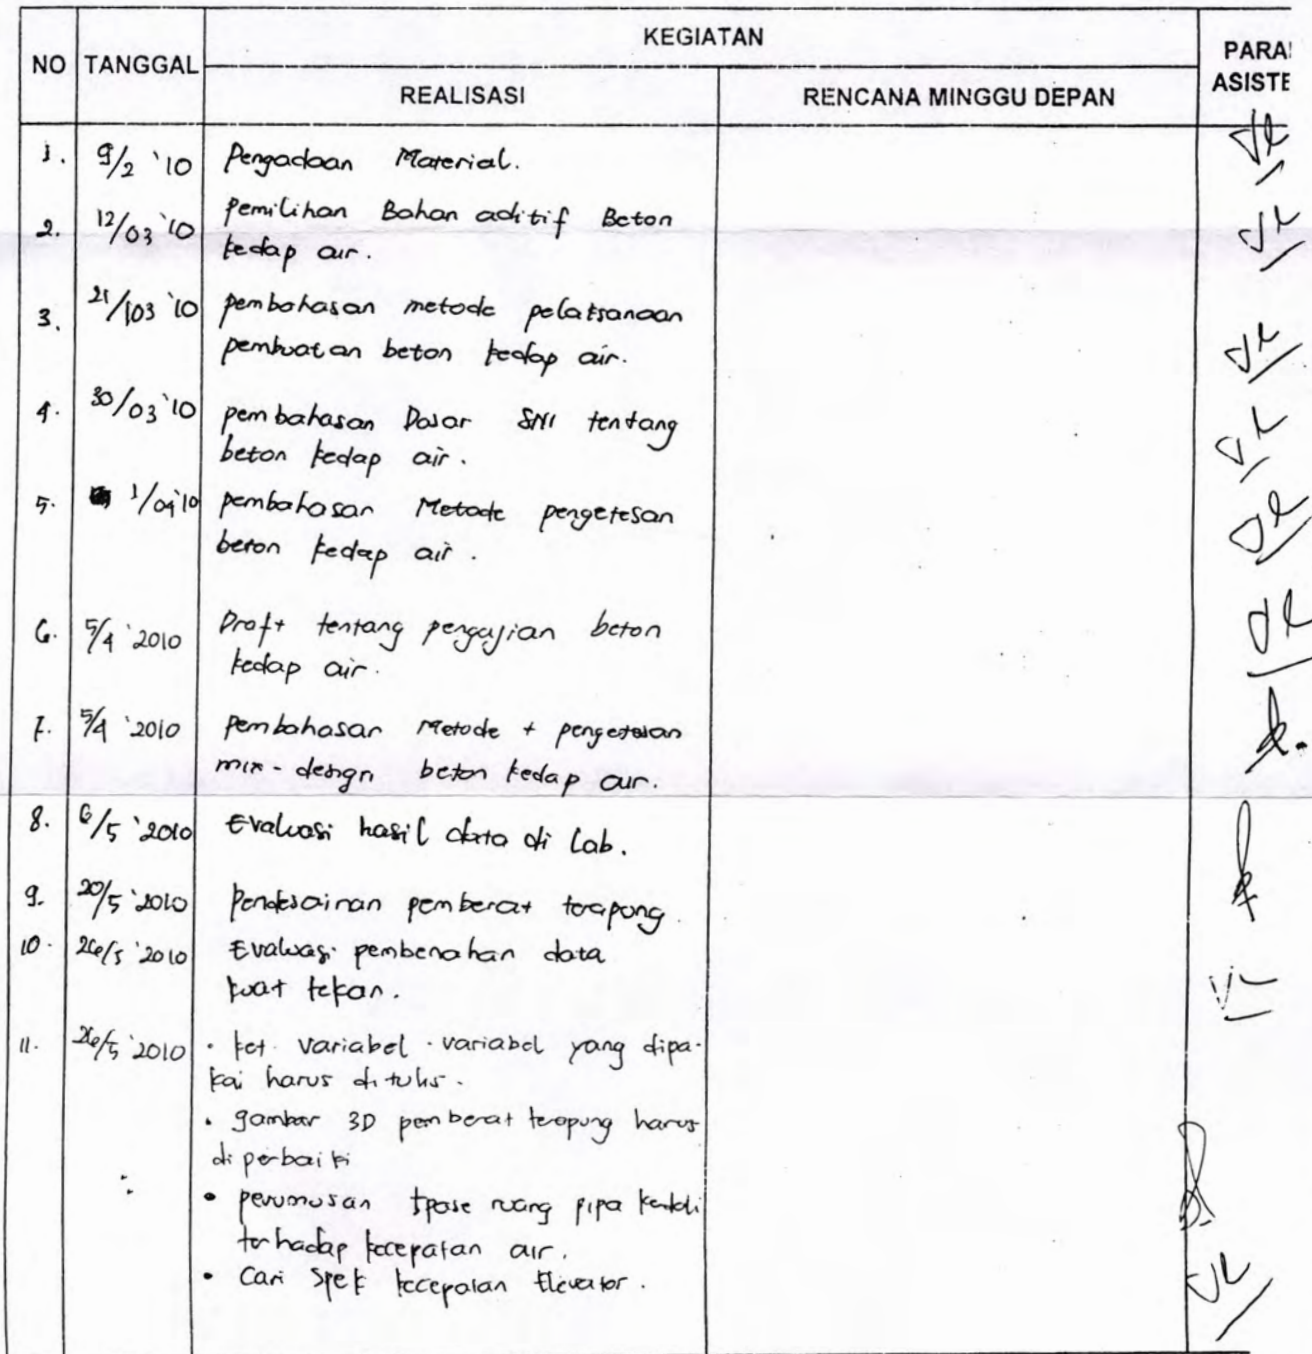 NO TANGGAL KEGIATAN PARA
ASISTE
REALISASI RENCANA MINGGU DEPAN
1. 9/2 '10 Pengadaan Material.
2. 12/03 '10 pemilihan Bahan aditif Beton
kedap air.
3. 21/03 '10 pembahasan metode pelaksanaan
pembuatan beton kedap air.
4. 30/03 '10 pembahasan Dasar SNI tentang
beton kedap air.
5. 1/04 '10 pembahasan Metode pengetesan
beton kedap air.
6. 5/4 '2010 Draft tentang pengujian beton
kedap air.
7. 5/4 '2010 pembahasan Metode + pengetesan
mix-design beton kedap air.
8. 6/5 '2010 Evaluasi hasil data di Lab.
9. 20/5 '2010 Pendesainan pemberat terapung.
10. 26/5 '2010 Evaluasi pembenahan data
kuat tekan.
11. 26/5 '2010 • ket. variabel-variabel yang dipa-
kai harus ditulis.
• gambar 3D pemberat terapung harus
diperbaiki
• perumusan ruang pipa
terhadap kecepatan air.
• Cari Spek kecepatan Elevator.